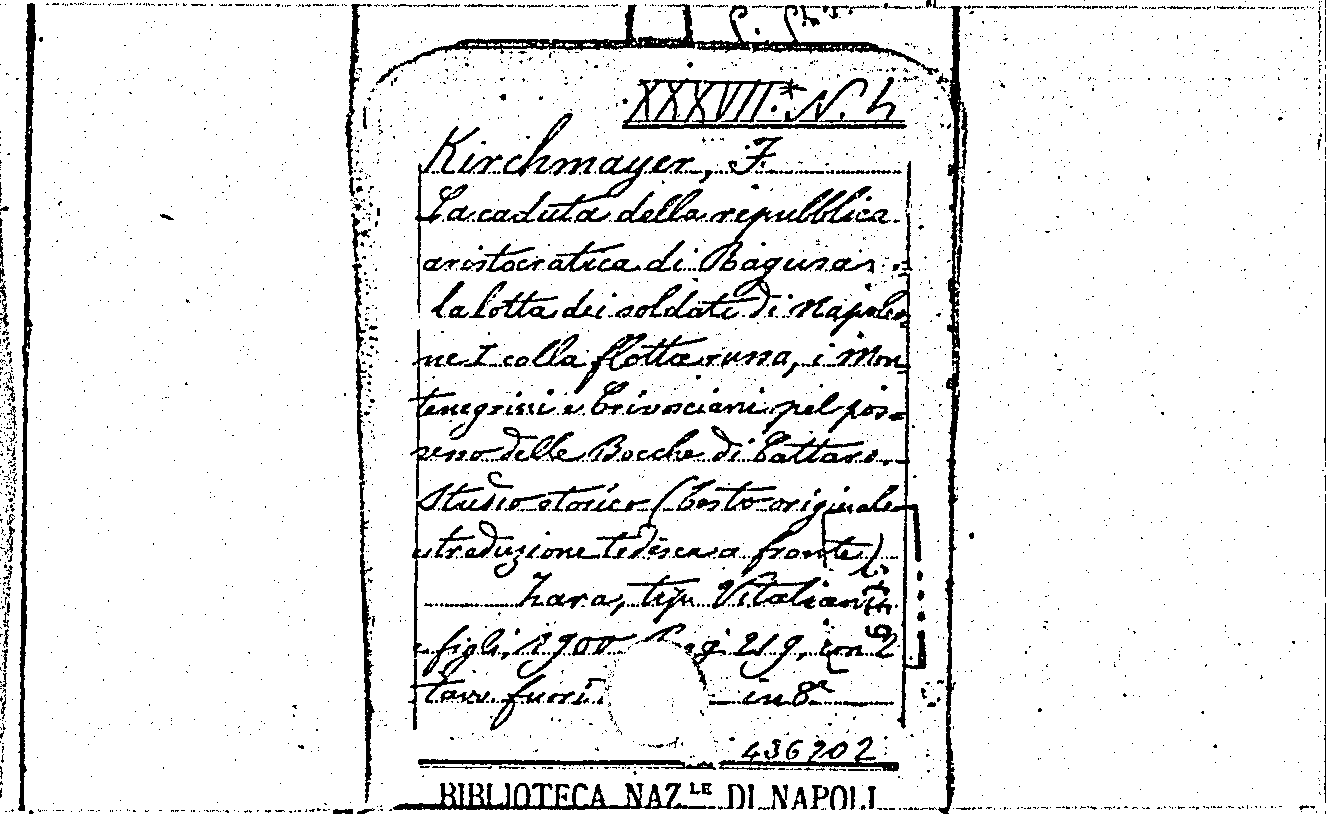 XXXVII.* N. 4
Kirchmayer, F.
La caduta della repubblica
aristocratica di Ragusa,
la lotta dei soldati di Napoleo-
ne I colla flotta russa, i Mon-
tenegrini e Crivosciani pel pos=
sesso delle Bocche di Cattaro.
Studio storico (testo originale
e traduzione tedesca a fronte)
Zara, tip. Vitaliani
e figli, 1900 219, con 2
tav. fuori in 8°
436202
BIBLIOTECA NAZ.LE DI NAPOLI